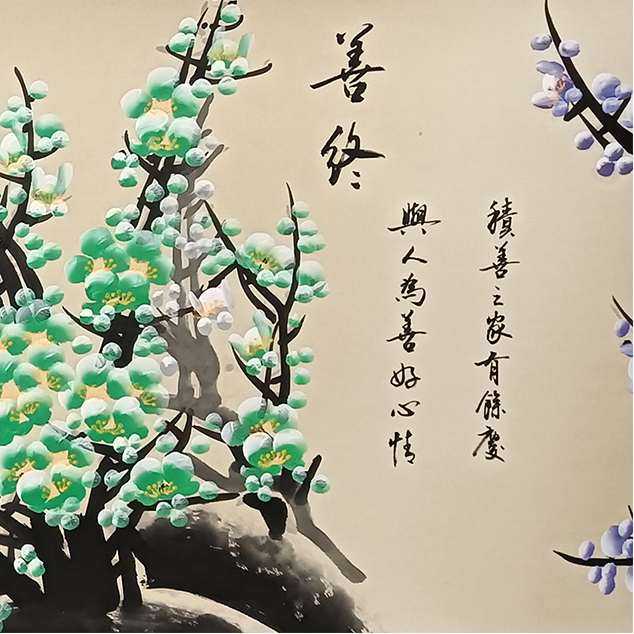 積善之家有餘慶
與人為善好心情
善終